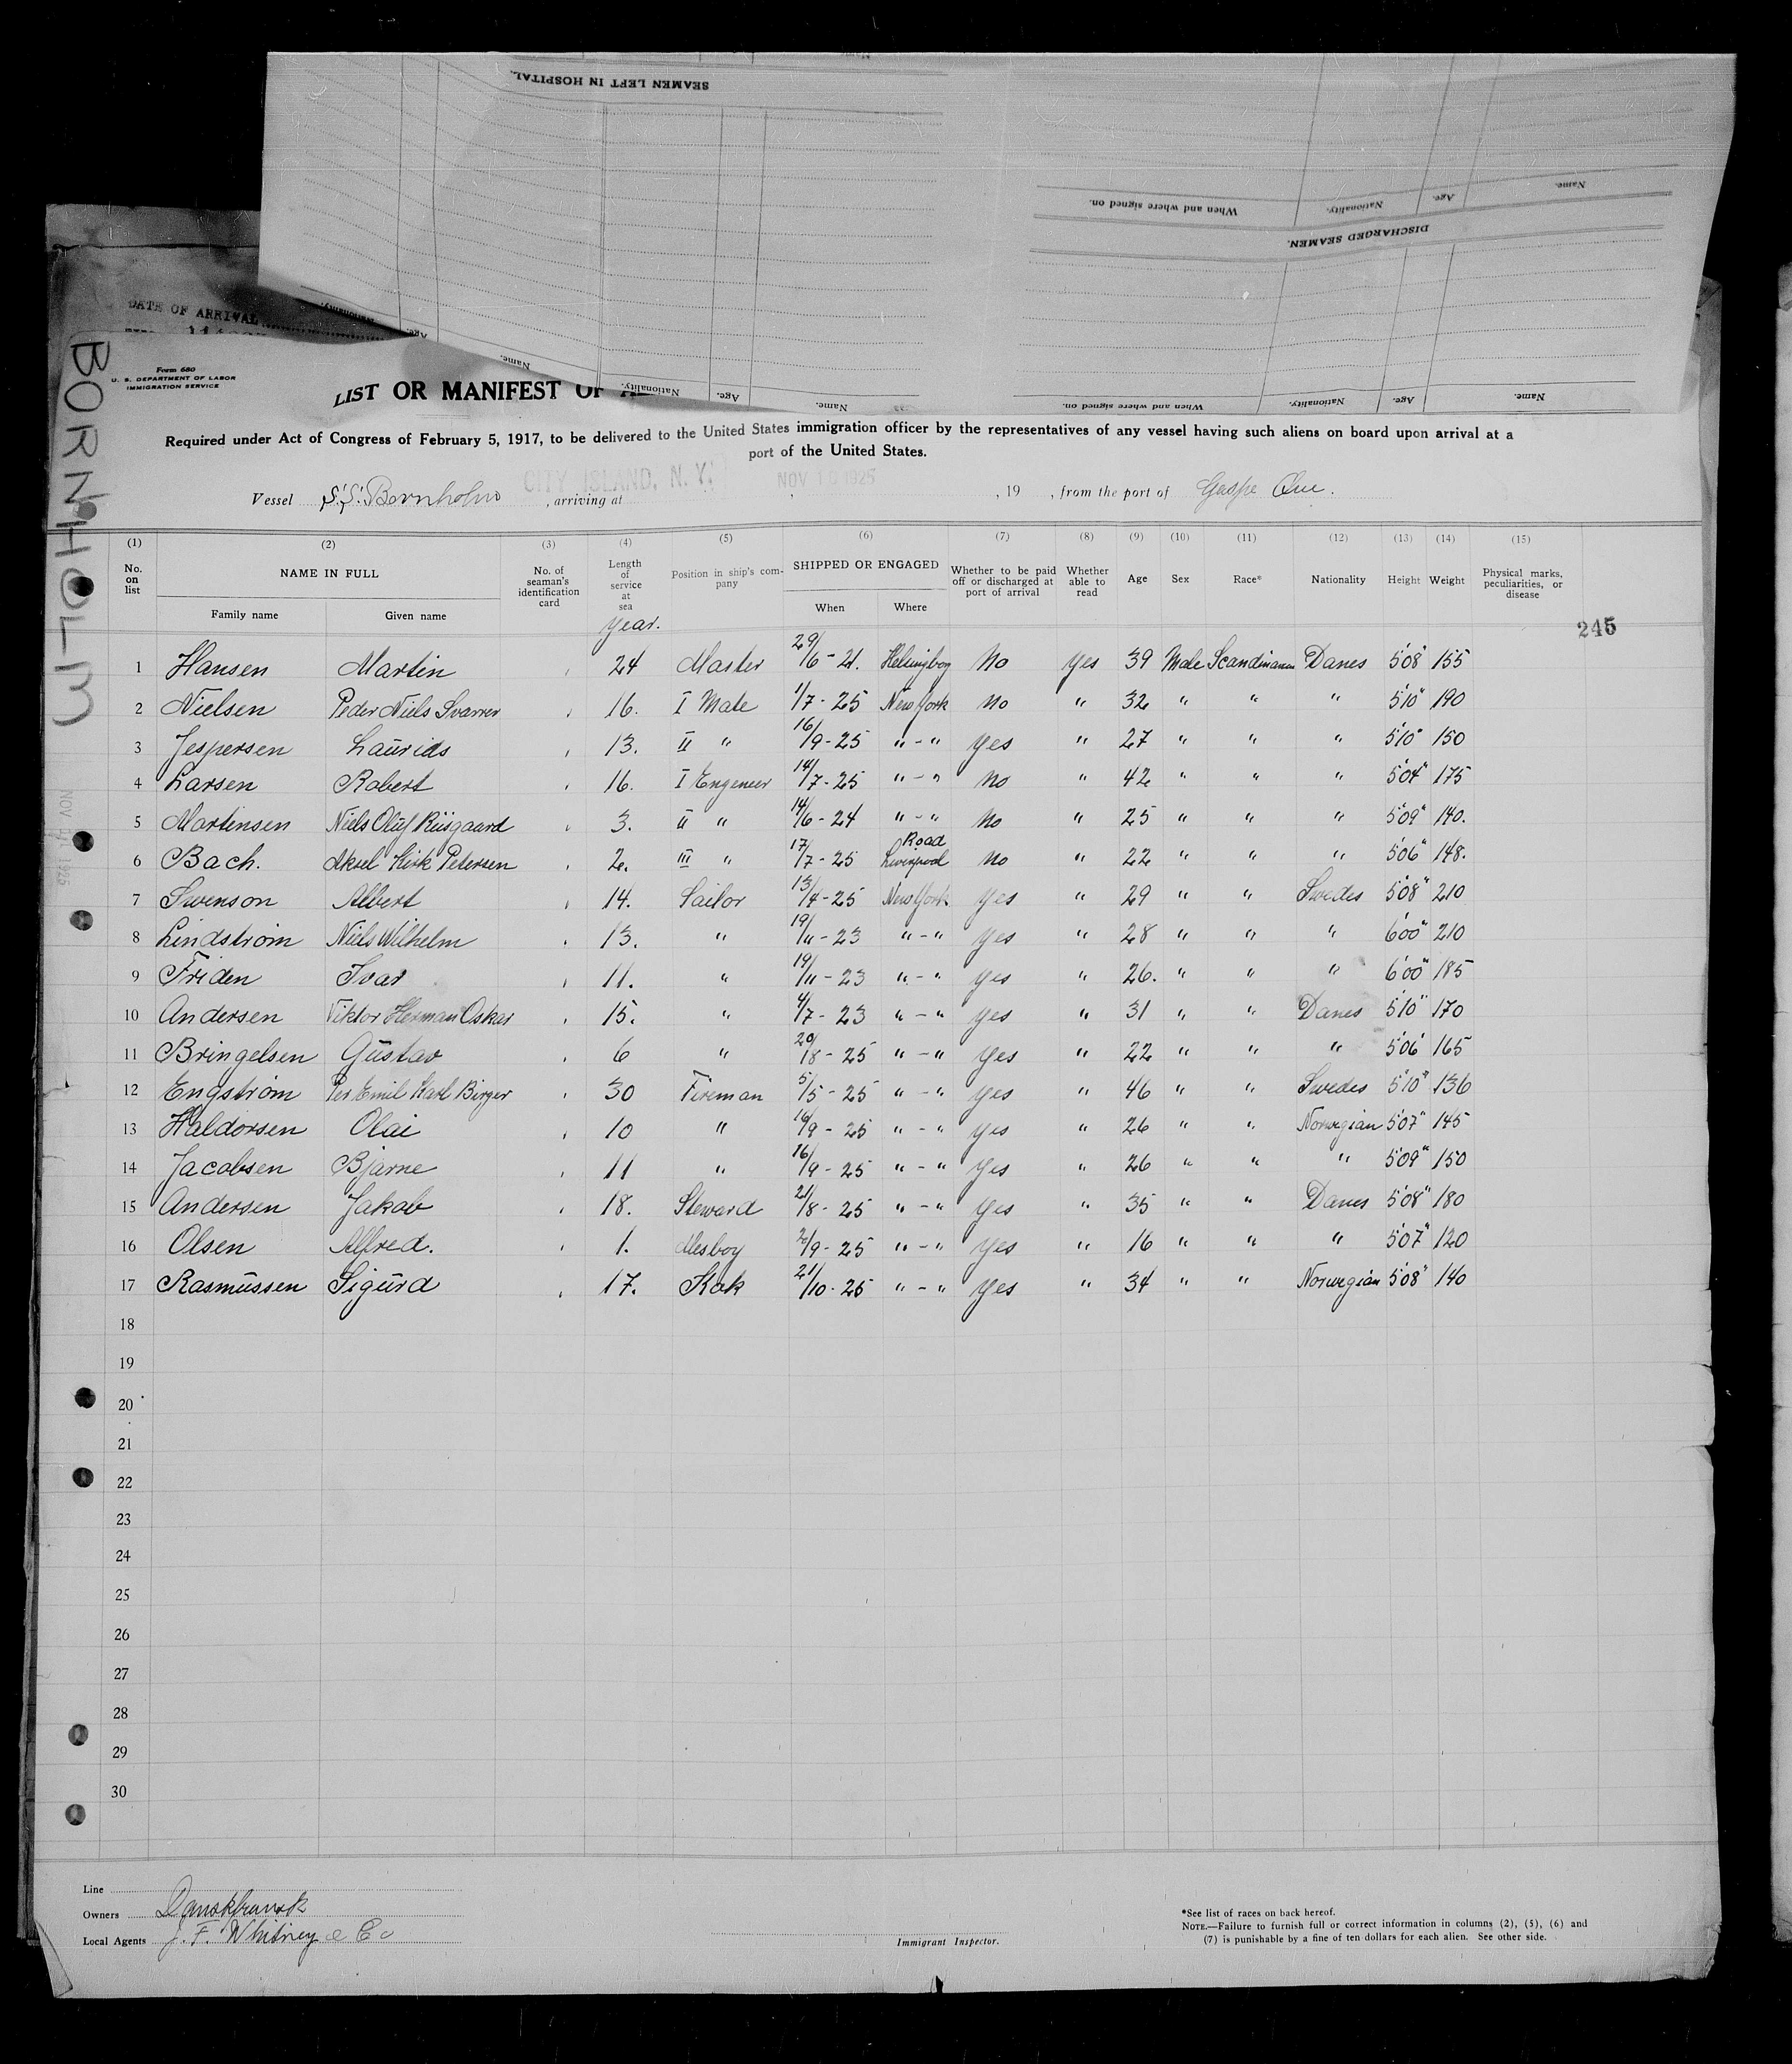 SEAMEN LEFT IN HOSPITAL.
When and where signed on. Nationality. Age. Name.
DISCHARGED SEAMEN.
Nationality. Age. Name.
Nationality. Age. Name.
When and where signed on. Nationality. Age. Name.
DATE OF ARRIVAL
BORNHOLM
Form 680
U. S. DEPARTMENT OF LABOR
IMMIGRATION SERVICE
LIST OR MANIFEST OF
Required under Act of Congress of February 5, 1917, to be delivered to the United States immigration officer by the representatives of any vessel having such aliens on board upon arrival at a
port of the United States.
CITY ISLAND, N. Y. NOV 10 1925
Vessel S.S. Bornholm , arriving at , , 19 , from the port of Gaspe Que.
(1) (2) (3) (4) (5) (6) (7) (8) (9) (10) (11) (12) (13) (14) (15)
No. on list NAME IN FULL Family name Given name No. of seaman's identification card Length of service at sea Position in ship's company SHIPPED OR ENGAGED When Where Whether to be paid off or discharged at port of arrival Whether able to read Age Sex Race* Nationality Height Weight Physical marks, peculiarities, or disease
year.
245
1 Hansen Martin 24 Master 29/6 - 21. Helsingborg No Yes 39 Male Scandinavian Danes 5'08" 155
2 Nielsen Peder Niels Svarrer 16. I Mate 1/7 - 25 New York No " 32 " " " 5'10" 190
3 Jespersen Laurids 13. II " 16/9 - 25 " - " Yes " 27 " " " 5'10" 150
4 Larsen Robert 16. I Engeneer 14/7 - 25 " - " No " 42 " " " 5'04" 175
5 Martensen Niels Oluf Riisgaard 3. II " 14/6 - 24 " - " No " 25 " " " 5'09" 140.
6 Bach. Aksel Kirk Petersen 2. III " 17/7 - 25 Liverpool Road No " 22 " " " 5'06" 148.
7 Swenson Albert 14. Sailor 13/4 - 25 New York Yes " 29 " " Swedes 5'08" 210
8 Lindstrom Niels Wilhelm 13. " 19/11 - 23 " - " Yes " 28 " " " 6'00" 210
9 Friden Ivar 11. " 19/11 - 23 " - " Yes " 26. " " " 6'00" 185
10 Andersen Viktor Herman Oskar 15. " 4/7 - 23 " - " Yes " 31 " " Danes 5'10" 170
11 Bringelsen Gustav 6 " 20/8 - 25 " - " Yes " 22 " " " 5'06" 165
12 Engstrom Per Emil Karl Birger 30 Fireman 5/5 - 25 " - " Yes " 46 " " Swedes 5'10" 136
13 Haldorsen Olai 10 " 16/9 - 25 " - " Yes " 26 " " Norwegian 5'07" 145
14 Jacobsen Bjarne 11 " 16/9 - 25 " - " Yes " 26 " " " 5'09" 150
15 Andersen Jakob 18. Steward 21/8 - 25 " - " Yes " 35 " " Danes 5'08" 180
16 Olsen Alfred. 1. Mesboy 2/9 - 25 " - " Yes " 16 " " " 5'07" 120
17 Rasmussen Sigurd 17. Kok 21/10 - 25 " - " Yes " 34 " " Norwegian 5'08" 140
18
19
20
21
22
23
24
25
26
27
28
29
30
Line
Owners Danskfransk
Local Agents J. F. Whitney & Co
Immigrant Inspector.
*See list of races on back hereof.
NOTE.—Failure to furnish full or correct information in columns (2), (5), (6) and
(7) is punishable by a fine of ten dollars for each alien. See other side.